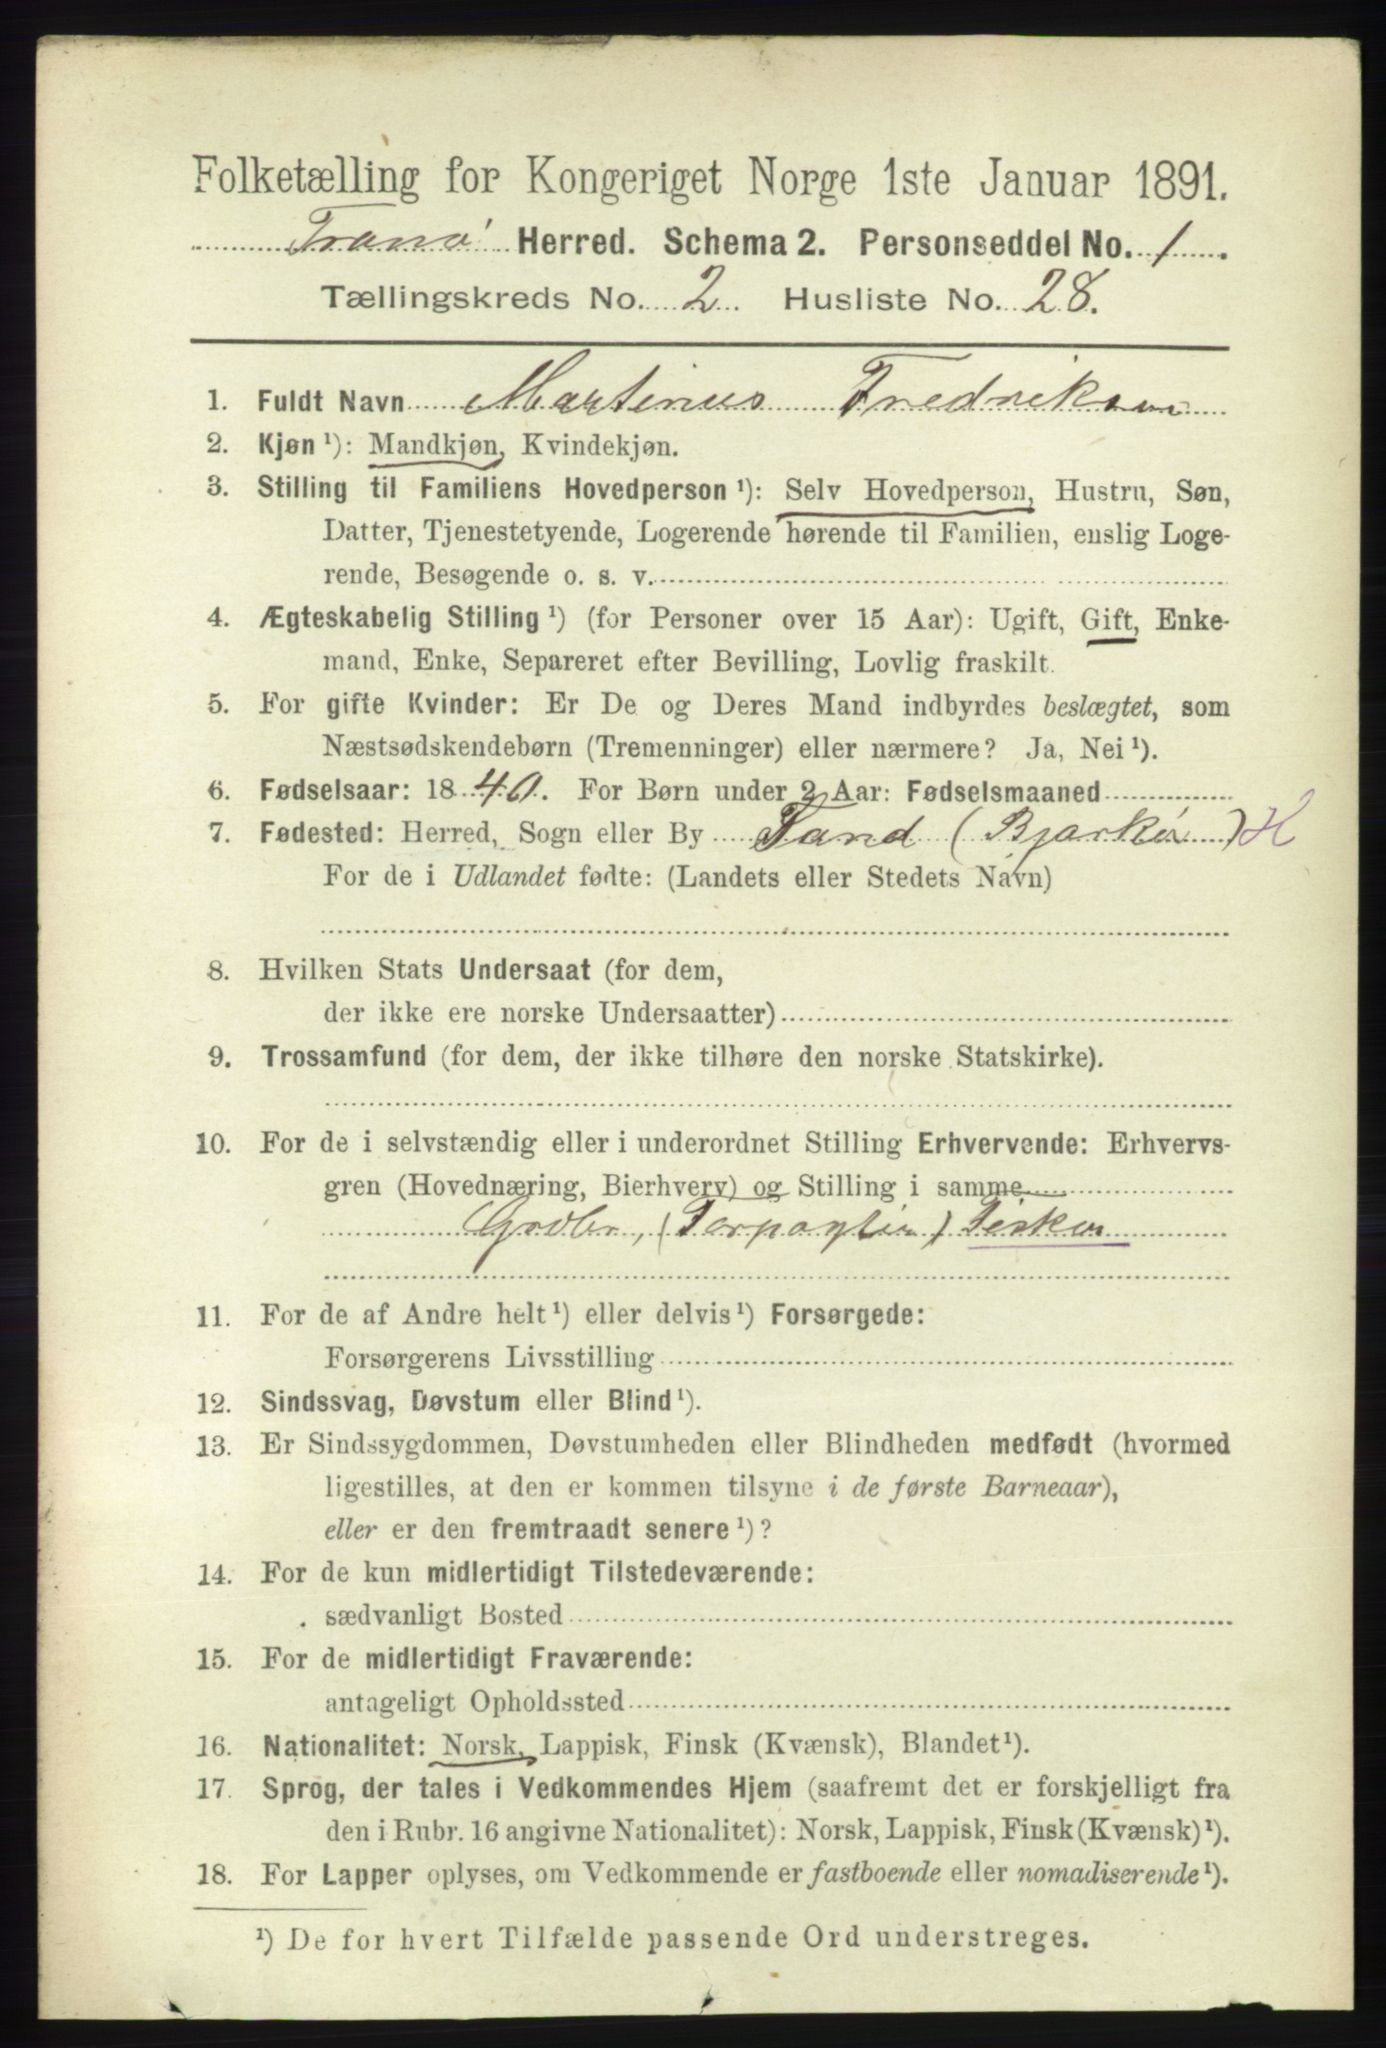 Folketælling for Kongeriget Norge 1ste Januar 1891.
Tranø Herred. Schema 2. Personseddel No. 1.
Tællingskreds No. 2. Husliste No. 28.
1. Fuldt Navn Martinus Fredriksen
2. Kjøn ¹): Mandkjøn, Kvindekjøn.
3. Stilling til Familiens Hovedperson ¹): Selv Hovedperson, Hustru, Søn,
Datter, Tjenestetyende, Logerende hørende til Familien, enslig Loge-
rende, Besøgende o. s. v.
4. Ægteskabelig Stilling ¹) (for Personer over 15 Aar): Ugift, Gift, Enke-
mand, Enke, Separeret efter Bevilling, Lovlig fraskilt.
5. For gifte Kvinder: Er De og Deres Mand indbyrdes beslægtet, som
Næstsødskendebørn (Tremenninger) eller nærmere? Ja, Nei ¹).
6. Fødselsaar: 1840. For Børn under 2 Aar: Fødselsmaaned
7. Fødested: Herred, Sogn eller By Sand (Bjarkø) H
For de i Udlandet fødte: (Landets eller Stedets Navn)
8. Hvilken Stats Undersaat (for dem,
der ikke ere norske Undersaatter)
9. Trossamfund (for dem, der ikke tilhøre den norske Statskirke).
10. For de i selvstændig eller i underordnet Stilling Erhvervende: Erhvervs-
gren (Hovednæring, Bierhverv) og Stilling i samme
Grdbr, Fisker
11. For de af Andre helt ¹) eller delvis ¹) Forsørgede:
Forsørgerens Livsstilling
12. Sindssvag, Døvstum eller Blind ¹).
13. Er Sindssygdommen, Døvstumheden eller Blindheden medfødt (hvormed
ligestilles, at den er kommen tilsyne i de første Barneaar),
eller er den fremtraadt senere ¹)?
14. For de kun midlertidigt Tilstedeværende:
sædvanligt Bosted
15. For de midlertidigt Fraværende:
antageligt Opholdssted
16. Nationalitet: Norsk, Lappisk, Finsk (Kvænsk), Blandet ¹).
17. Sprog, der tales i Vedkommendes Hjem (saafremt det er forskjelligt fra
den i Rubr. 16 angivne Nationalitet): Norsk, Lappisk, Finsk (Kvænsk) ¹).
18. For Lapper oplyses, om Vedkommende er fastboende eller nomadiserende ¹).
¹) De for hvert Tilfælde passende Ord understreges.